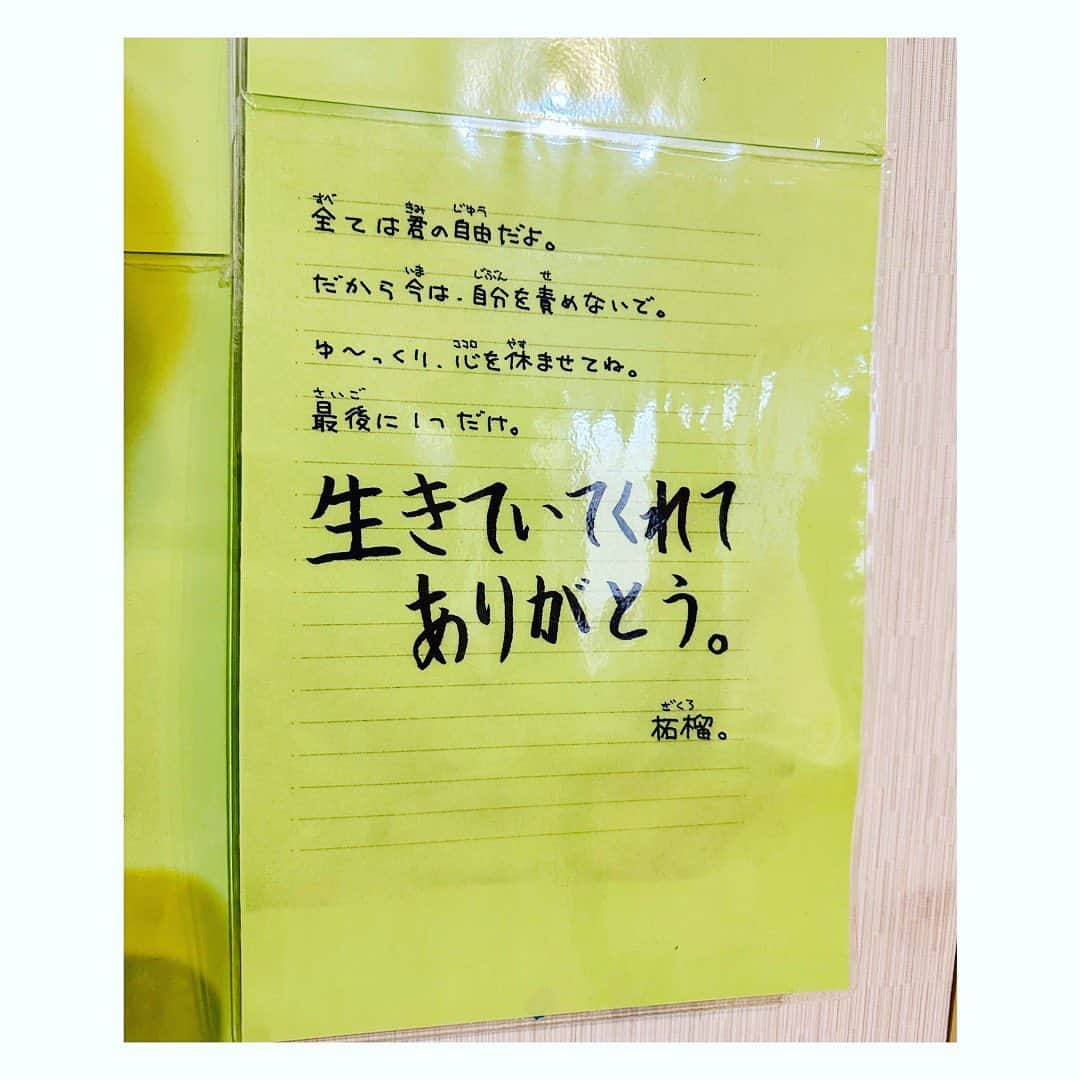 全ては君の自由だよ。
だから今は、自分を責めないで。
ゆ〜っくり、心を休ませてね。
最後に1つだけ。
生きていてくれて
ありがとう。
柘榴。